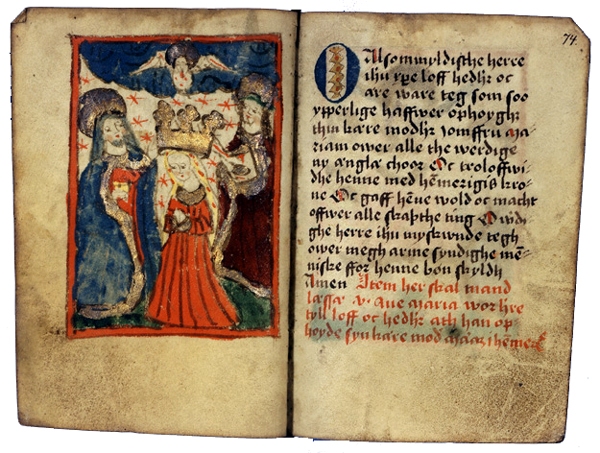 74.
O Alsommyldisthe herre
ihu xpe loff hedhr oc
are ware teg som soo
ypperlige haffwer ophoyghr
thin kære modhr Jomffru ma-
riam ower alle the werdige
ny ænglæ choor Oc troloffwi-
dhe henne med hēmerigis kro-
ne Oc gaff hēne wold oc macht
offwer alle skapthe ting O wdi-
ghe herre ihu myskwnde tegh
ower megh arme syndighe mē-
niske ffor henne bøn skyldh
Amen Item her skal mand
læssæ v. Aue maria wor hre
tyll loff oc hedhr ath han op
hoyde syn kære mod